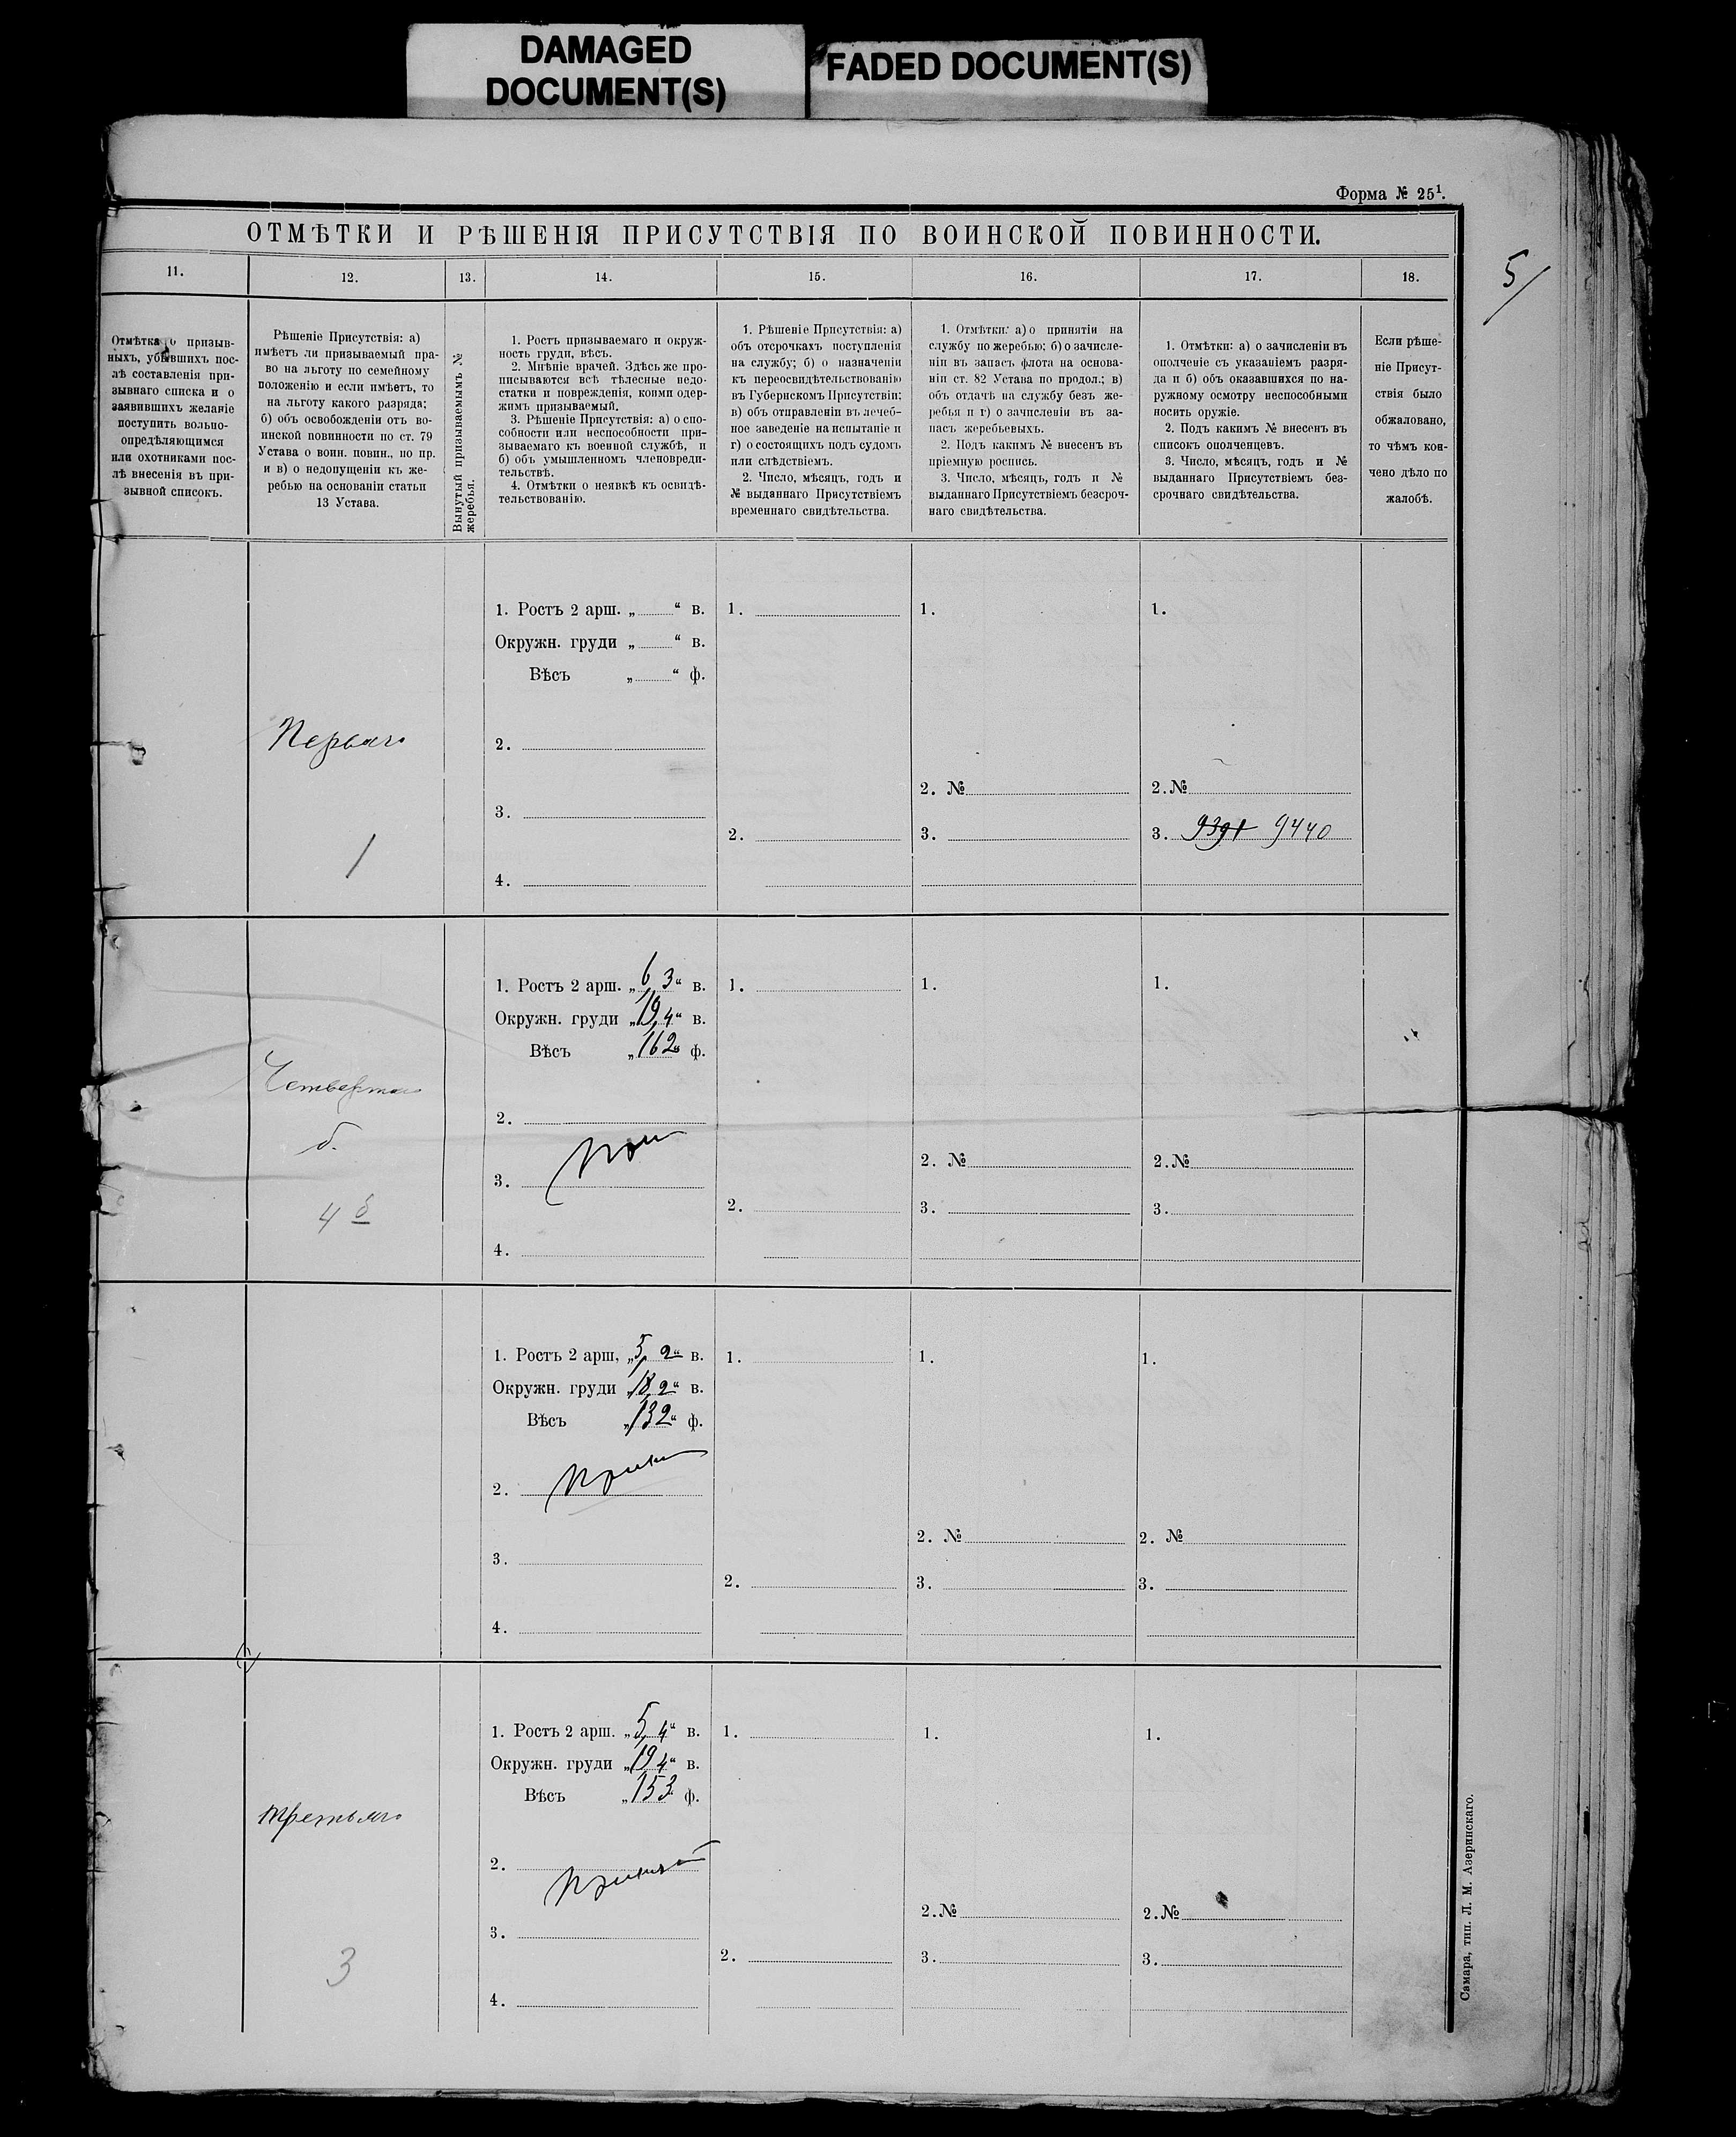 DAMAGED
DOCUMENT(S)
FADED DOCUMENT(S)
Форма № 25¹.
5/
ОТМѢТКИ И РѢШЕНІЯ ПРИСУТСТВІЯ ПО ВОИНСКОЙ ПОВИННОСТИ.
11.
12.
13.
14.
15.
16.
17.
18.
Отмѣтка о призыв-
ныхъ, убывшихъ пос-
лѣ составленія при-
зывнаго списка и о
заявившихъ желаніе
поступить вольно-
опредѣляющимся
или охотниками пос-
лѣ внесенія въ при-
зывной списокъ.
Рѣшеніе Присутствія: а)
имѣетъ ли призываемый пра-
во на льготу по семейному
положенію и если имѣетъ, то
на льготу какого разряда;
б) объ освобожденіи отъ во-
инской повинности по ст. 79
Устава о воин. повин., по пр.
и в) о недопущеніи къ же-
ребью на основаніи статьи
13 Устава.
Вынутый призываемымъ №
жеребья.
1. Ростъ призываемаго и окруж-
ность груди, вѣсъ.
2. Мнѣніе врачей. Здѣсь же про-
писываются всѣ тѣлесные недо-
статки и поврежденія, коими одер-
жимъ призываемый.
3. Рѣшеніе Присутствія: а) о спо-
собности или неспособности при-
зываемаго къ военной службѣ, и
б) объ умышленномъ членовреди-
тельствѣ.
4. Отмѣтки о неявкѣ къ освидѣ-
тельствованію.
1. Рѣшеніе Присутствія: а)
объ отсрочкахъ поступленія
на службу; б) о назначеніи
къ переосвидѣтельствованію
въ Губернскомъ Присутствіи;
в) объ отправленіи въ лечеб-
ное заведеніе на испытаніе и
г) о состоящихъ подъ судомъ
или слѣдствіемъ.
2. Число, мѣсяцъ, годъ и
№ выданнаго Присутствіемъ
временнаго свидѣтельства.
1. Отмѣтки: а) о принятіи на
службу по жеребью; б) о зачисле-
ніи въ запасъ флота на основа-
ніи ст. 82 Устава по продол.; в)
объ отдачѣ на службу безъ же-
ребья и г) о зачисленіи въ за-
пасъ жеребьевыхъ.
2. Подъ какимъ № внесенъ въ
пріемную роспись.
3. Число, мѣсяцъ, годъ и №
выданнаго Присутствіемъ безсроч-
наго свидѣтельства.
1. Отмѣтки: а) о зачисленіи въ
ополченіе съ указаніемъ разря-
да и б) объ оказавшихся по на-
ружному осмотру неспособными
носить оружіе.
2. Подъ какимъ № внесенъ въ
списокъ ополченцевъ.
3. Число, мѣсяцъ, годъ и №
выданнаго Присутствіемъ без-
срочнаго свидѣтельства.
Если рѣше-
ніе Присут-
ствія было
обжаловано,
то чѣмъ кон-
чено дѣло по
жалобѣ.
1. Ростъ 2 арш. „ “ в.
Окружн. груди „ “ в.
Вѣсъ „ “ ф.
Перваго
1
2.
3.
4.
1.
2.
1.
2. №
3.
1.
2. №
3. 9391 9440
1. Ростъ 2 арш. „6,3“ в.
Окружн. груди „19,4“ в.
Вѣсъ „162“ ф.
Четвертаго
б.
4 б
2.
3.
4.
1.
2.
1.
2. №
3.
1.
2. №
3.
1. Ростъ 2 арш. „5, 2“ в.
Окружн. груди „18,2“ в.
Вѣсъ „132“ ф.
2.
3.
4.
1.
2.
1.
2. №
3.
1.
2. №
3.
1. Ростъ 2 арш. „5,4“ в.
Окружн. груди „19,4“ в.
Вѣсъ „153“ ф.
третьяго
3
2.
3.
4.
1.
2.
1.
2. №
3.
1.
2. №
3.
Самара, тип. Л. М. Азеринскаго.